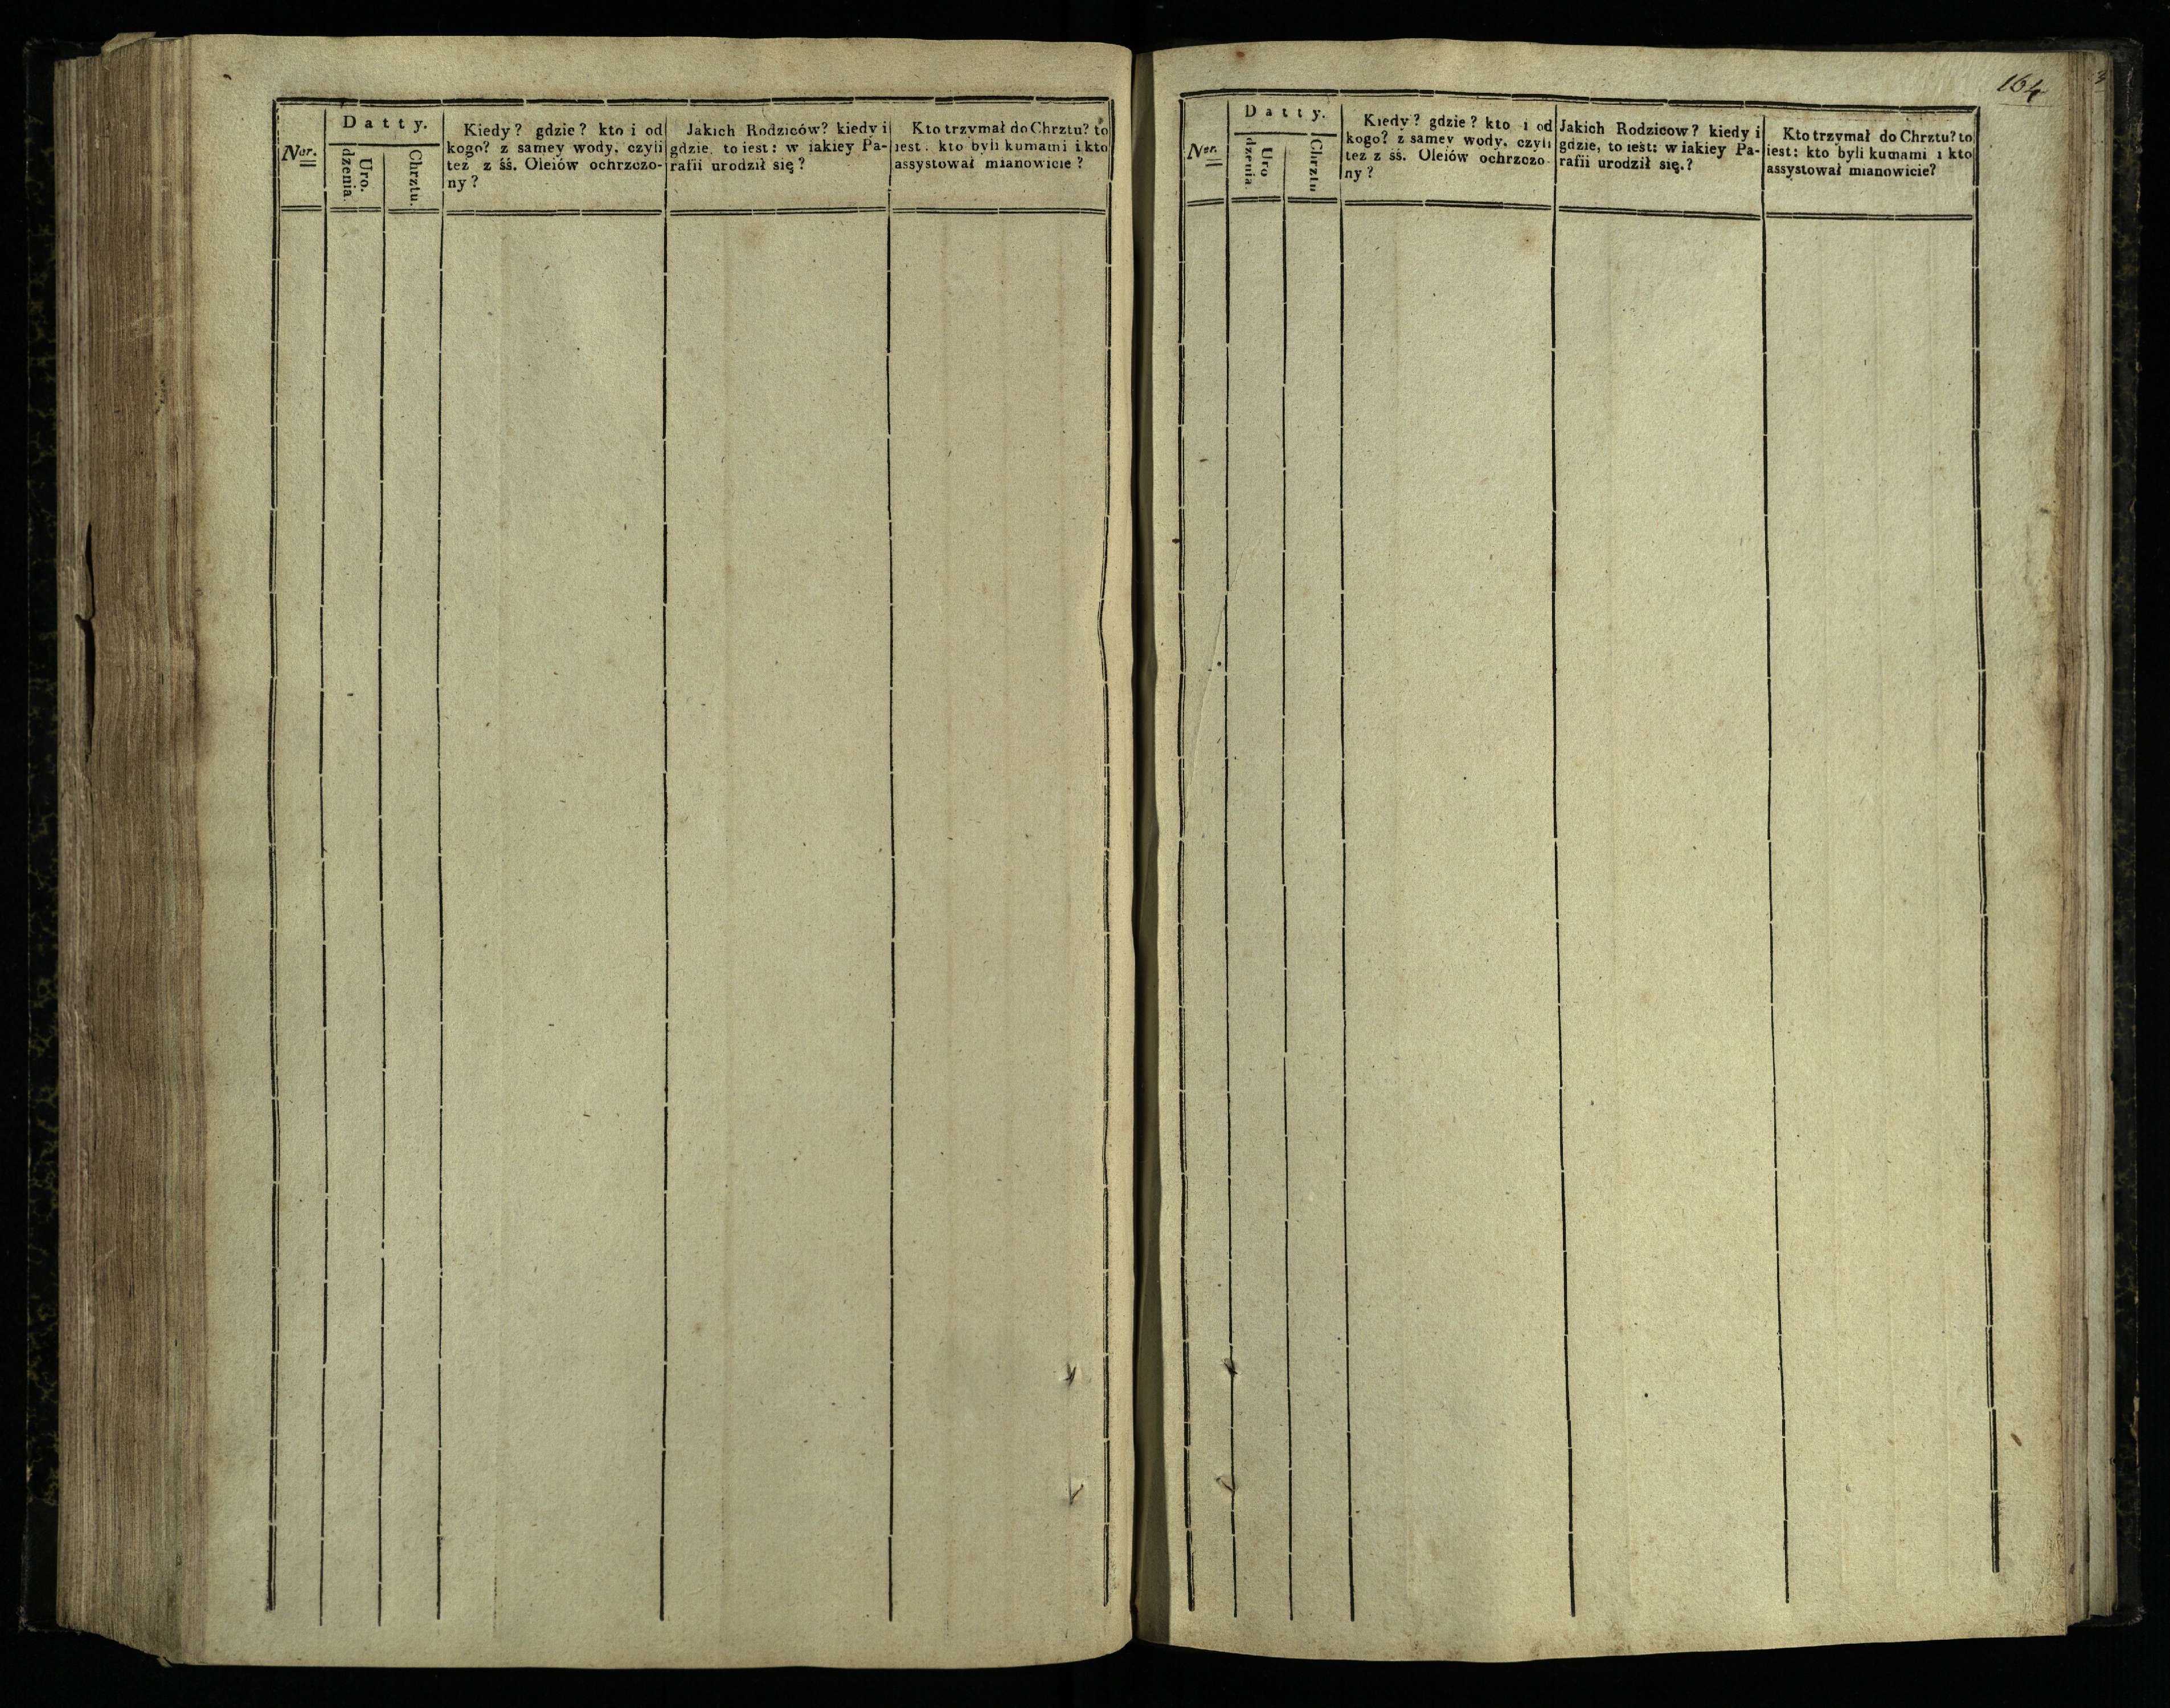 Ner.
Datty.
Uro.
dzenia.
Chrztu.
Kiedy? gdzie? kto i od
kogo? z samey wody, czyli
tez z śś. Oleiów ochrzczo-
ny?
Jakich Rodziców? kiedy i
gdzie, to iest: w iakiey Pa-
rafii urodził się?
Kto trzymał do Chrztu? to
iest: kto byli kumami i kto
assystował mianowicie?
164
Ner.
Datty.
Uro
dzenia.
Chrztu
Kiedy? gdzie? kto i od
kogo? z samey wody, czyli
tez z śś. Oleiów ochrzczo-
ny?
Jakich Rodzicow? kiedy i
gdzie, to iest: w iakiey Pa-
rafii urodził się.?
Kto trzymał do Chrztu? to
iest: kto byli kumami i kto
assystował mianowicie?